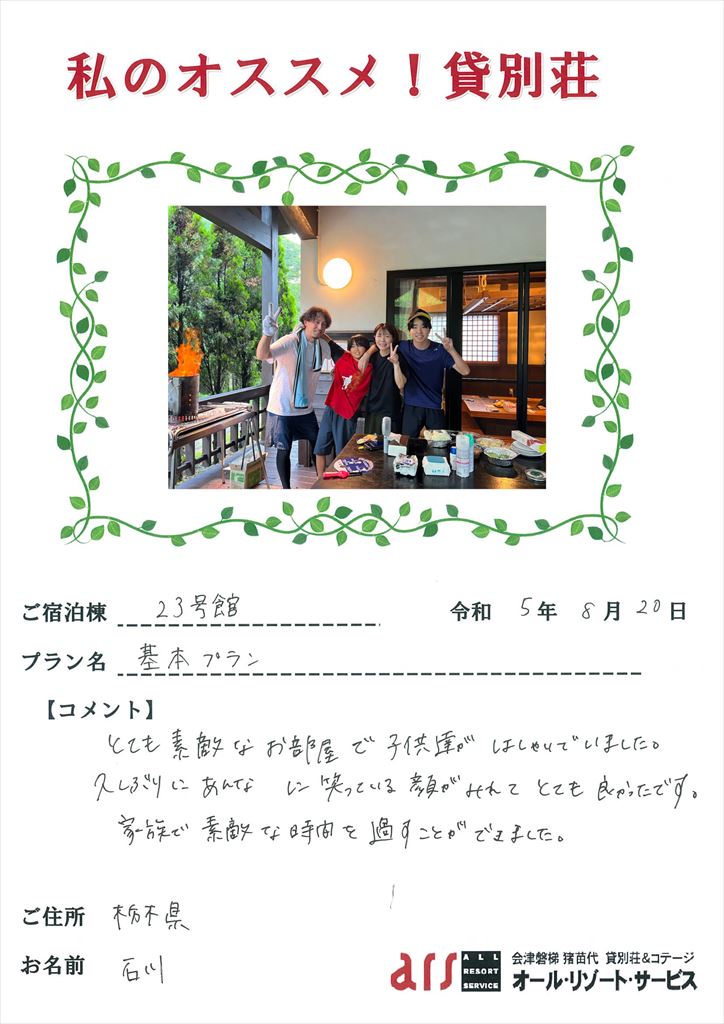 私のオススメ！貸別荘
ご宿泊棟 23号館 令和 5年 8月 20日
プラン名 基本プラン
【コメント】
とても素敵なお部屋で子供達が はしゃいでいました。
久しぶりに あんな に笑っている顔がみれて とても 良かったです。
家族で 素敵な時間を過すことができました。
ご住所 栃木県
お名前 石川
ars ALL RESORT SERVICE 会津磐梯 猪苗代 貸別荘&コテージ
オール・リゾート・サービス